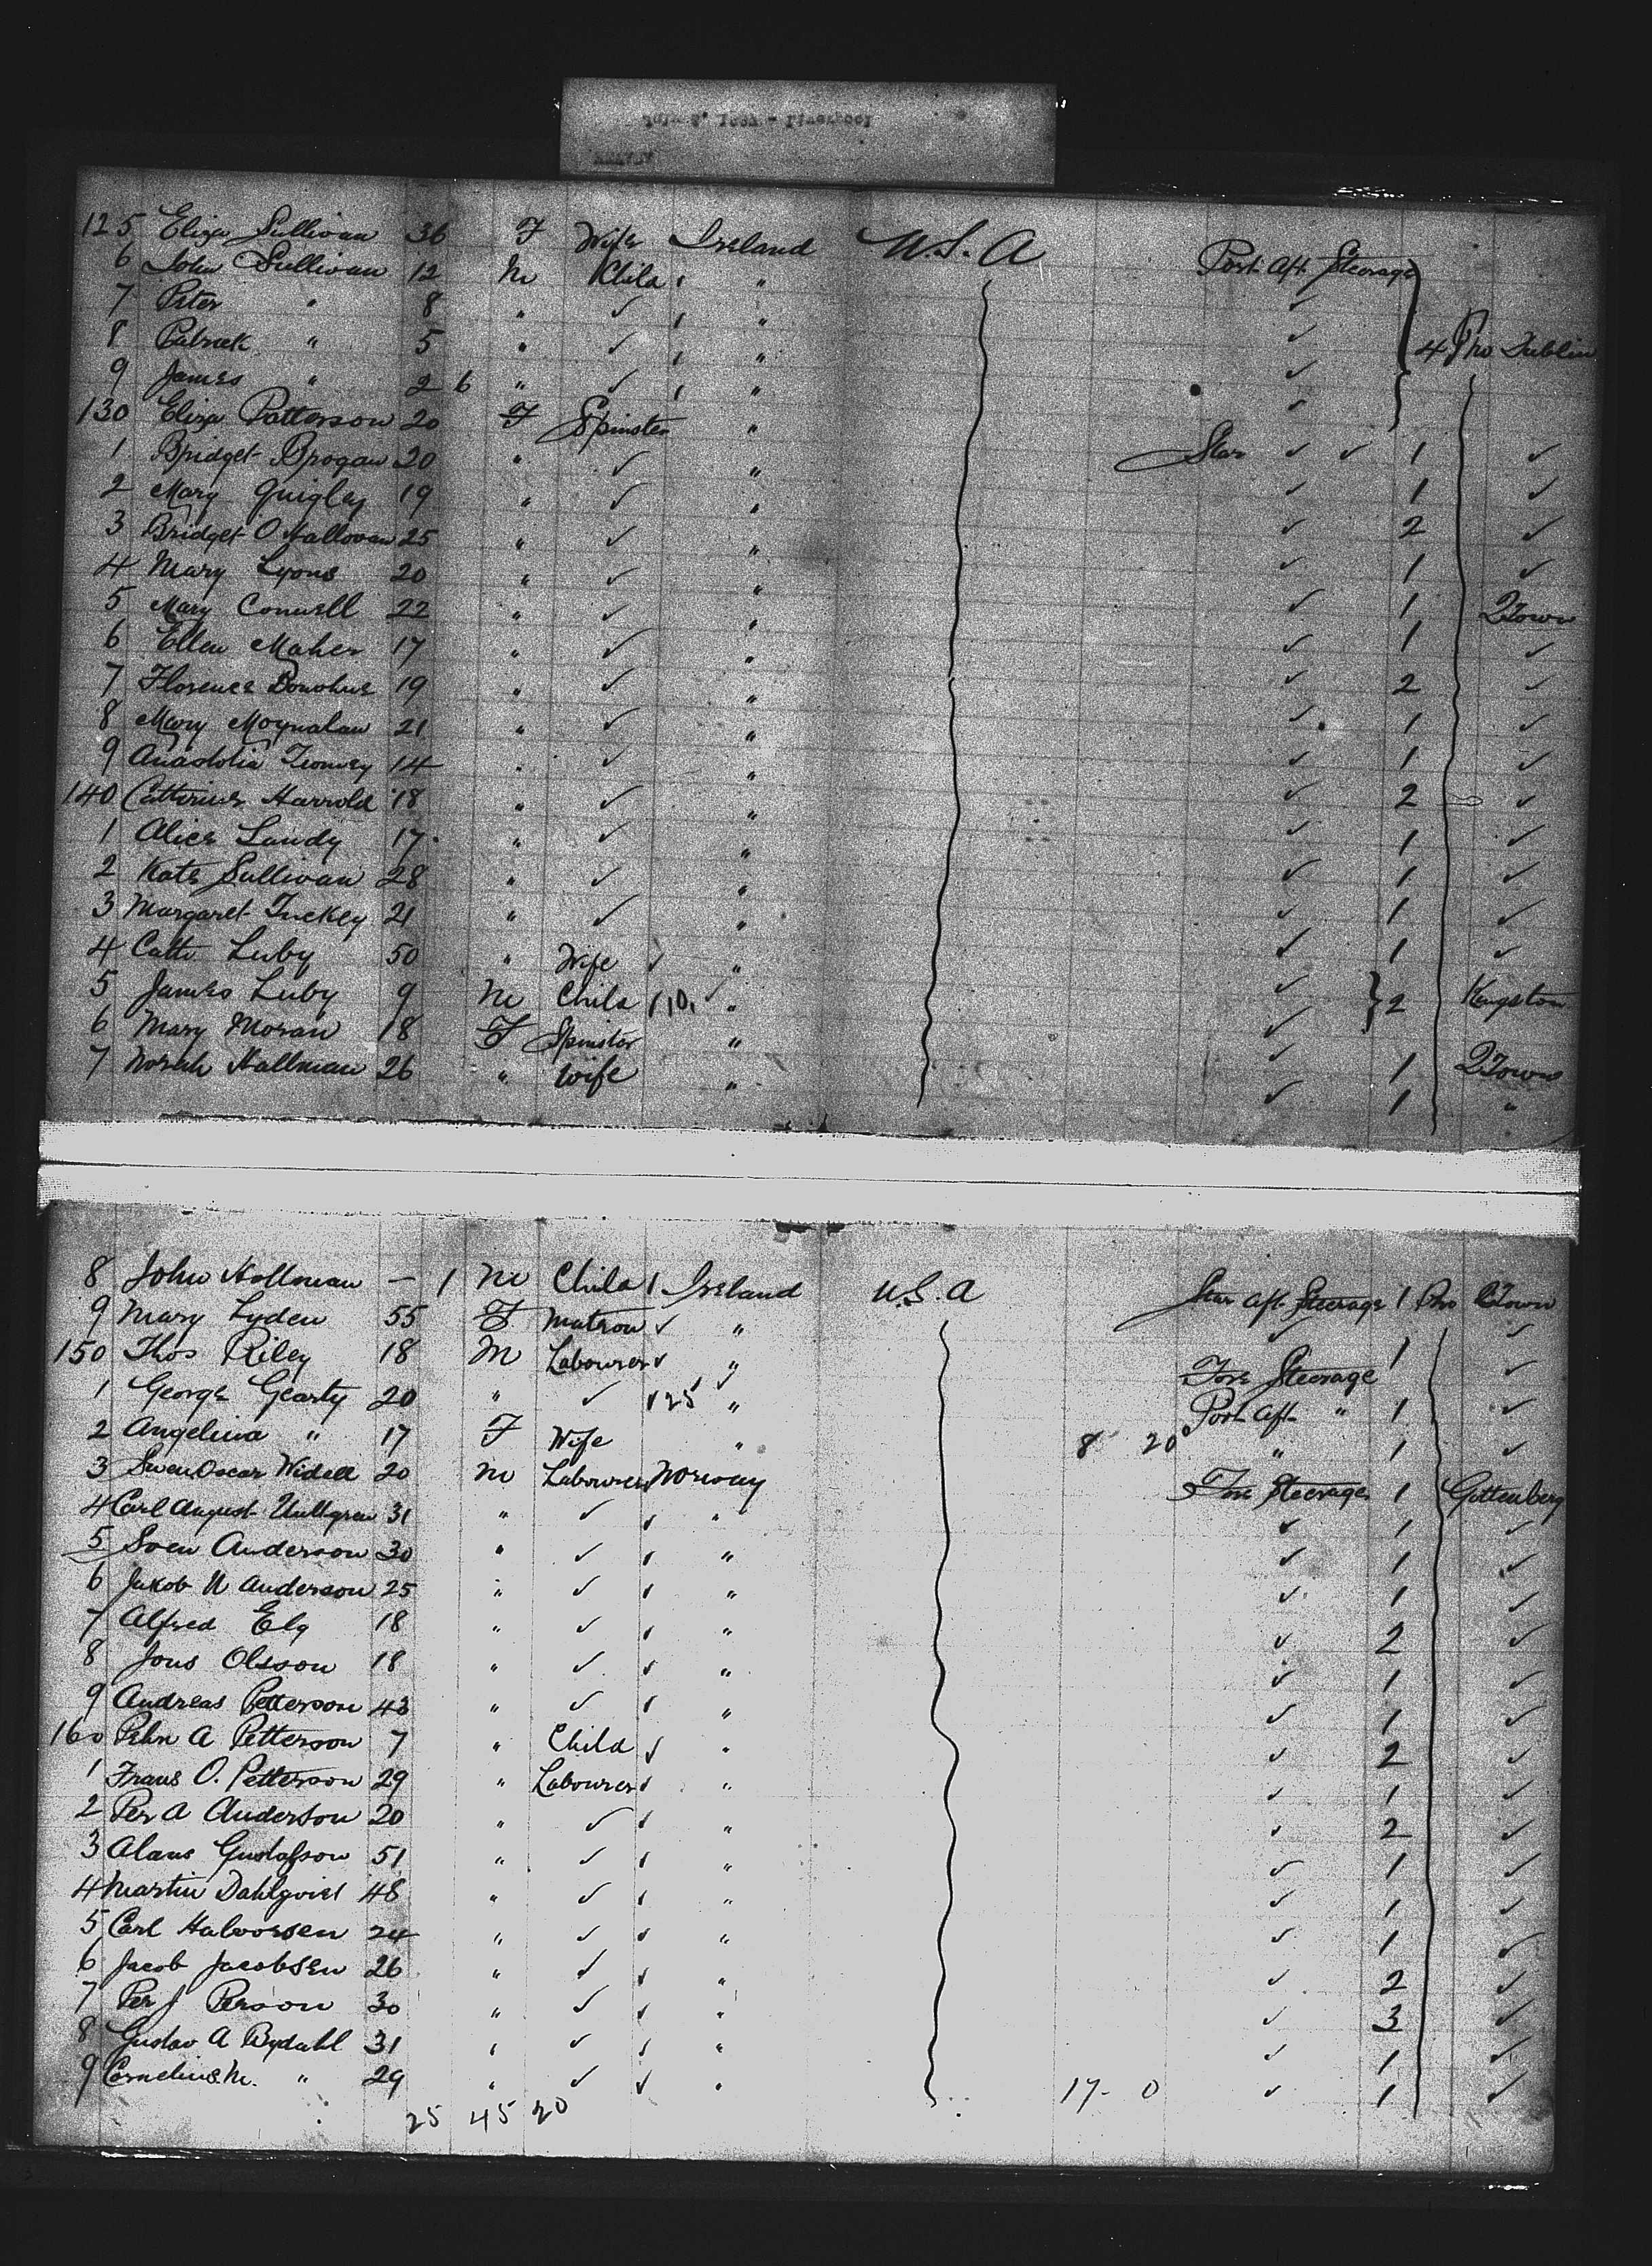 125 Eliza Sullivan 36 F Wife Ireland U.S.A Port Aft Steerage
6 John Sullivan 12 m Child " ✓
7 Peter " 8 " ✓ " ✓ 4 Pro Dublin
8 Patrick " 5 " ✓ " ✓
9 James " 2 6 " ✓ " ✓
130 Eliza Patterson 20 F Spinster " Star ✓ ✓ 1 ✓
1 Bridget Brogan 20 " ✓ " ✓ 1 ✓
2 Mary Quigley 19 " ✓ " ✓ 2 ✓
3 Bridget O'Hallovan 25 " ✓ " ✓ 1 ✓
4 Mary Lyons 20 " ✓ " ✓ 1 QTown
5 Mary Conwell 22 " ✓ " ✓ 1 ✓
6 Ellen Maher 17 " ✓ " ✓ 2 ✓
7 Florence Donohue 19 " ✓ " ✓ 1 ✓
8 Mary Moynalan 21 " ✓ " ✓ 1 ✓
9 14 " ✓ " ✓ 2 ✓
140 Catterine Harrold 18 " ✓ " ✓ 1 ✓
1 Alice Landy 17 " ✓ " ✓ 1 ✓
2 Kate Sullivan 28 " ✓ " ✓ 1 ✓
3 Margaret Tuckey 21 " ✓ " ✓ 1 ✓
4 Cath Luby 50 " Wife ✓ " ✓
5 James Luby 9 m Child 10 ✓ " ✓ 2 Kingston
6 Mary Moran 18 F Spinster " ✓ 1 QTown
7 Norah Hallman 26 " Wife " ✓ 1 "
8 John Hallman - 1 m Child Ireland U.S.A Star Aft Steerage 1 Pro QTown
9 Mary Lyden 55 F Matron ✓ " ✓ 1 ✓
150 Thos Riley 18 M Labourer ✓ " Fore Steerage ✓
1 George Gearty 20 " ✓ 25 ✓ " Port Aft " 1 ✓
2 Angelina " 17 F Wife " 8 20 " 1 ✓
3 Swen Oscar Widell 20 m Labourer Norway Fore Steerage 1 Gottenberg
4 Carl August Hullgren 31 " ✓ " ✓ 1 ✓
5 Sven Anderson 30 " ✓ " ✓ 1 ✓
6 Jakob N Anderson 25 " ✓ " ✓ 1 ✓
7 Alfred Elg 18 " ✓ " ✓ 2 ✓
8 Jons Olsson 18 " ✓ " ✓ 1 ✓
9 Andreas Petterson 43 " ✓ " ✓ 1 ✓
160 Pehn A Petterson 7 " Child ✓ " ✓ 2 ✓
1 Frans O. Petterson 29 " Labourer " ✓ 1 ✓
2 Per A Anderson 20 " ✓ " ✓ 2 ✓
3 Alans Gustafson 51 " ✓ " ✓ 1 ✓
4 Martin Dahlqvist 48 " ✓ " ✓ 1 ✓
5 Carl Halvorsen 24 " ✓ " ✓ 1 ✓
6 Jacob Jacobsen 26 " ✓ " ✓ 2 ✓
7 Per J Person 30 " ✓ " ✓ 3 ✓
8 Gustav A Rydahl 31 " ✓ " ✓ 1 ✓
9 Cornelius M. " 29 " ✓ " 17- 0 ✓ 1 ✓
25 45 20